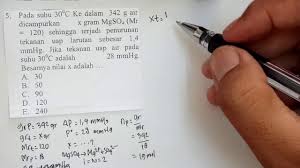 5. Pada suhu 30°C Ke dalam 342 g air
dicampurkan x gram MgSO₄ (Mr
= 120) sehingga terjadi penurunan
tekanan uap larutan sebesar 1,4
mmHg. Jika tekanan uap air pada
suhu 30°C adalah 28 mmHg.
Besarnya nilai x adalah ....
A. 30
B. 50
C. 90
D. 120
E. 240
xt = 1
grP = 342 gr
ΔP = 1,4 mmHg
P° = 28 mmHg
x = ....?
i = n = 2